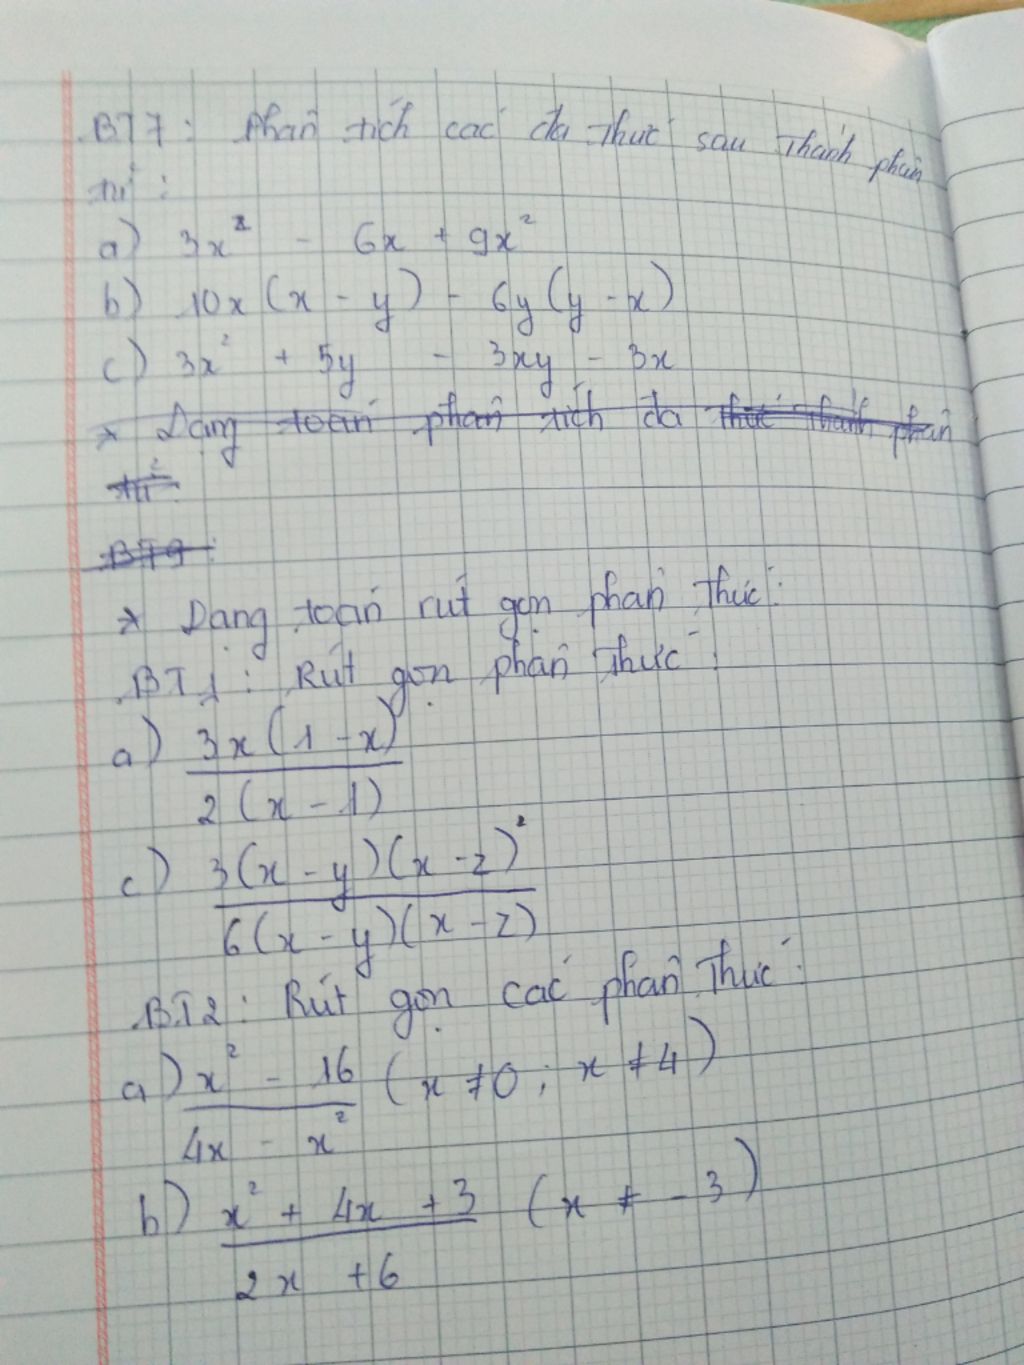 BT7: Phân tích các đa thức sau thành phân
tử:
a) 3x² - 6x + 9x²
b) 10x(x - y) - 6y(y - x)
c) 3x² + 5y - 3xy - 3x
* Dạng toán phân tích đa thức thành phân
tử:
BT9:
* Dạng toán rút gọn phân thức:
BT1: Rút gọn phân thức:
a) 3x(1 - x)
2(x - 1)
c) 3(x - y)(x - z)²
6(x - y)(x - z)
BT2: Rút gọn các phân thức:
a) x² - 16 (x ≠ 0; x ≠ 4)
4x - x²
b) x² + 4x + 3 (x ≠ - 3)
2x + 6